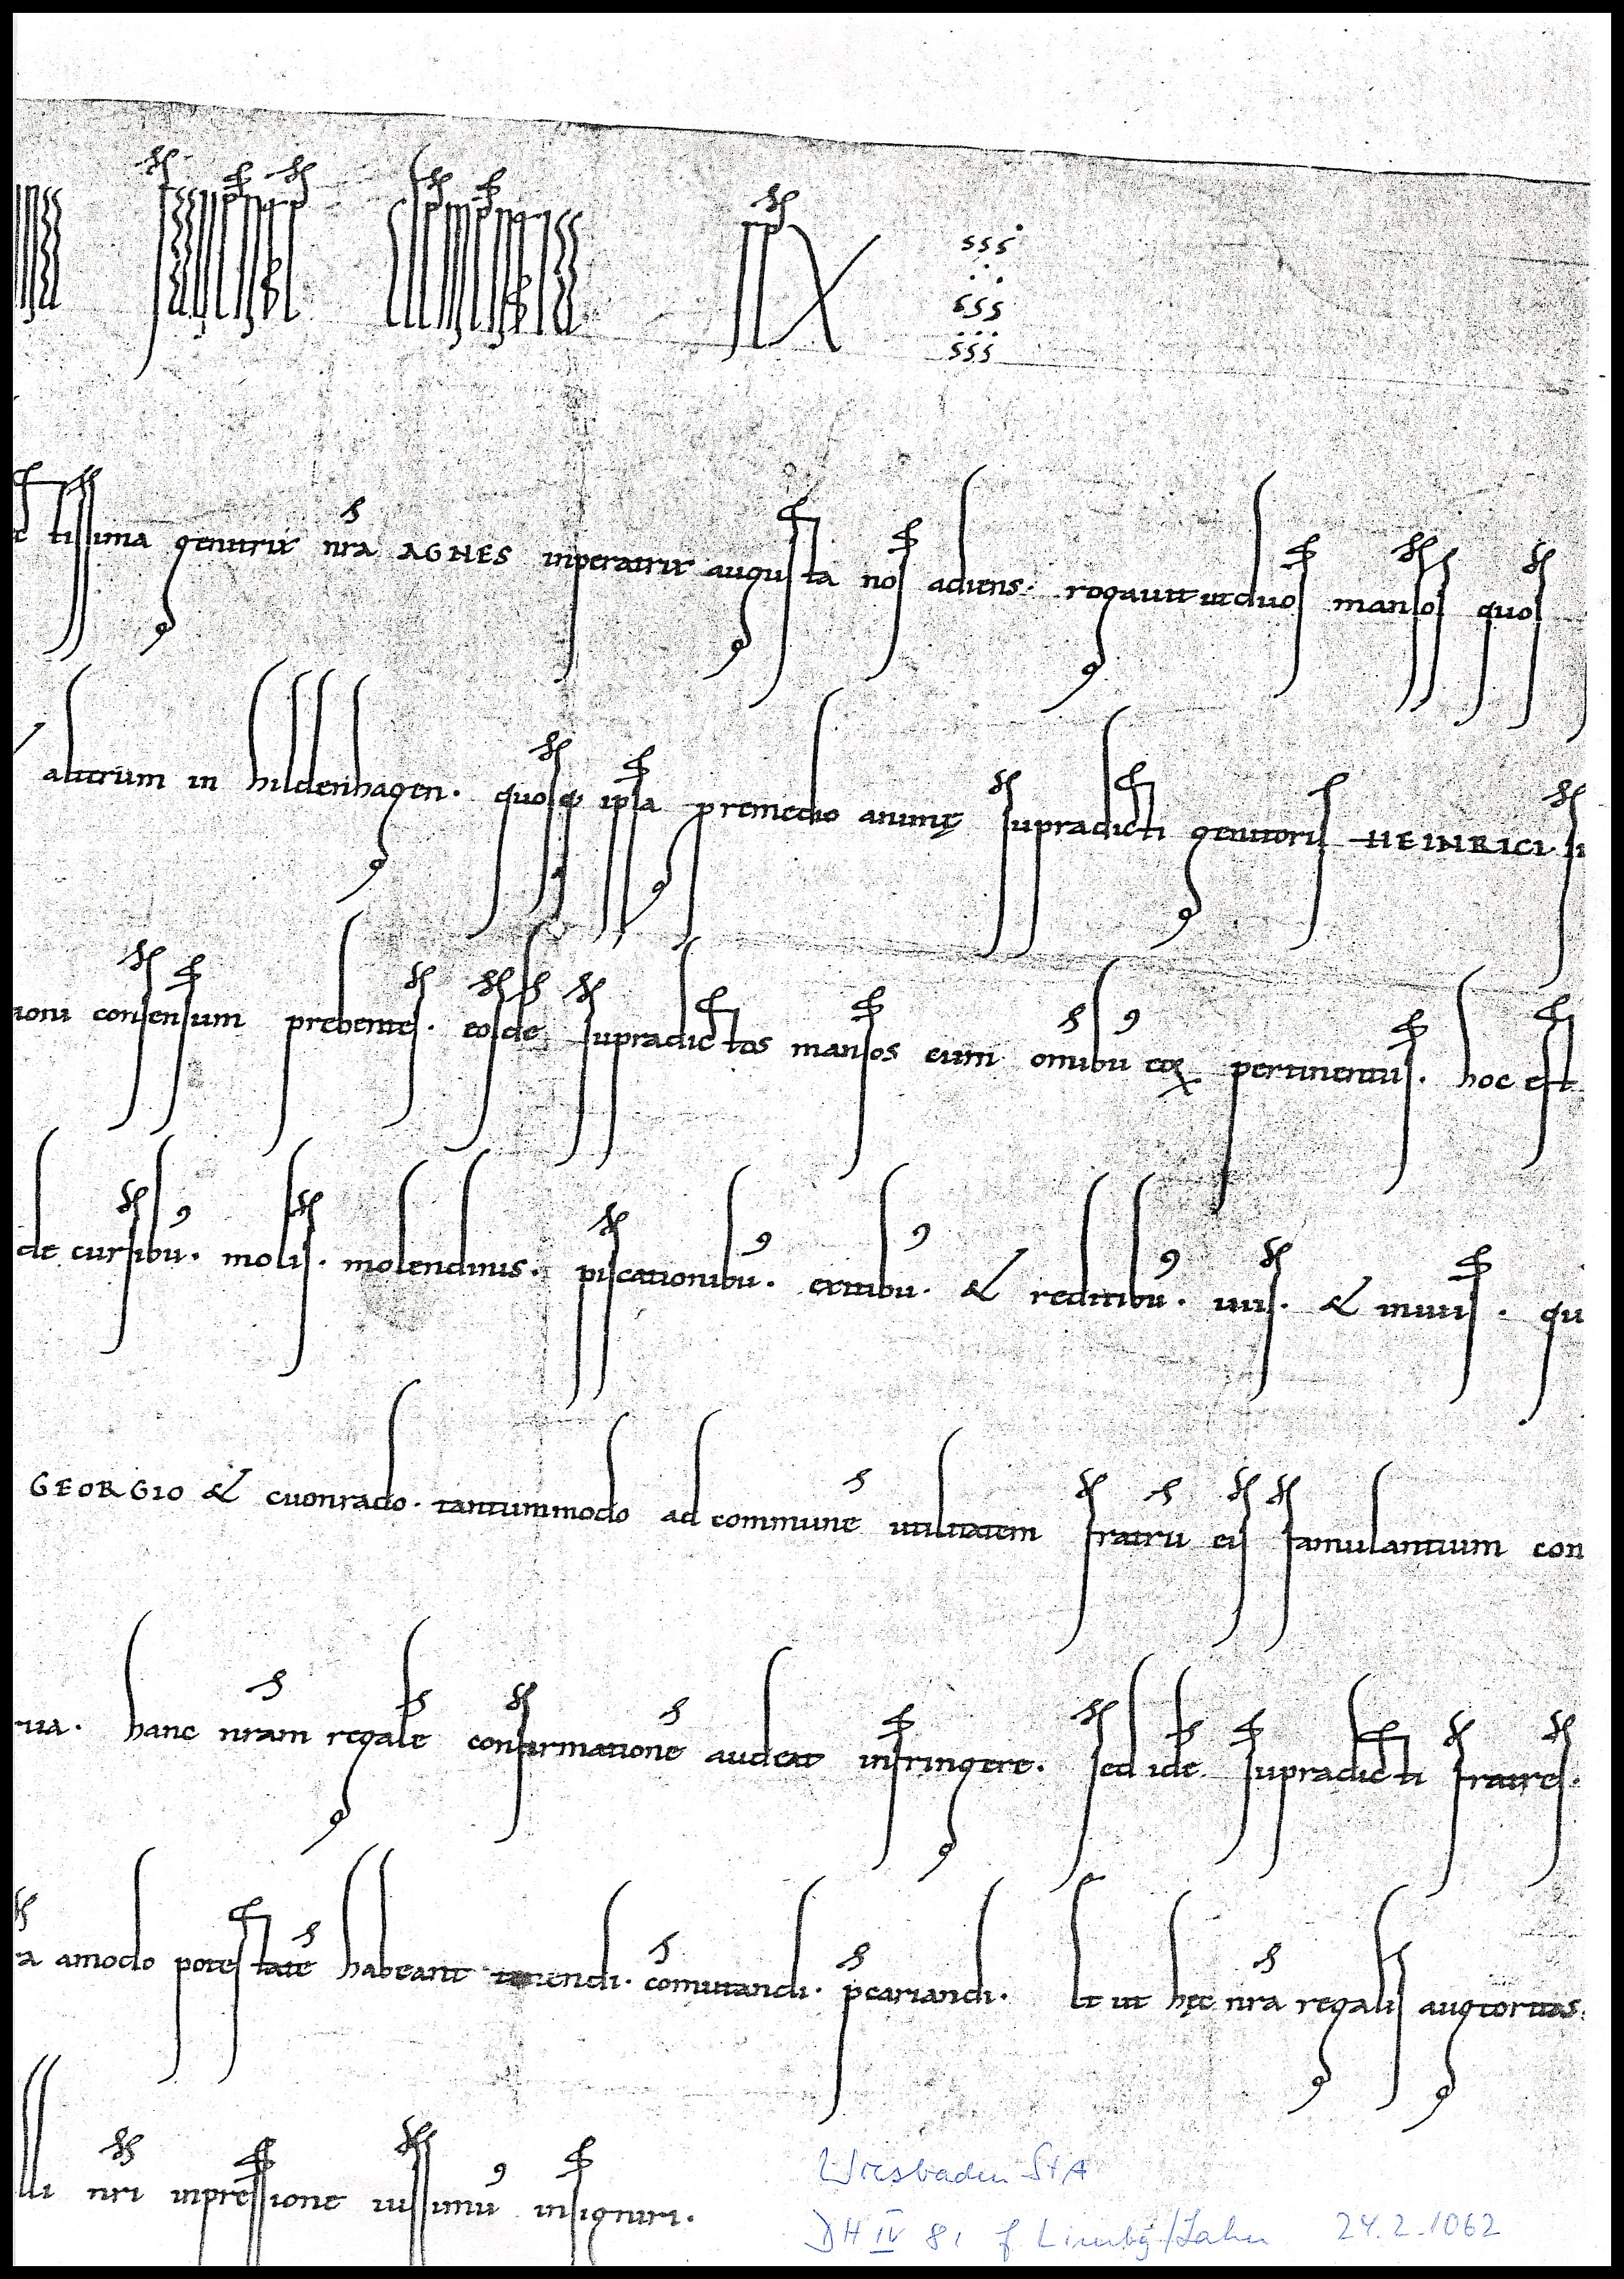 rex
tissima genitrix nra AGNES inperatrix augusta nos adiens. rogauit ut duos mansos quos
alterum in hildenhagen. quosq; ipsa premedio animę supradicti genitoris HEINRICI.
ioni consensum prebentes. eosdē supradictos mansos cum omibus eoꝝ pertinentiis. hoc est
de cursibus. molis. molendinis. piscationibus. exitibus. & reditibus. uiis. & inuiis. qu
GEORGIO & cuonrado. tantummodo ad communē utilitatem fratrū eis famulantium con
rua. hanc nram regalē confirmationē audeat infringere. sed idē supradicti fratres.
a amodo potestatē habeant tenendi. comutandi. pcariandi. Et ut hęc nra regalis augtoritas.
illi nri inpressione iussimus insigniri.
Wiesbaden StA
DH IV 81 f Limbg/Lahn 24.2.1062